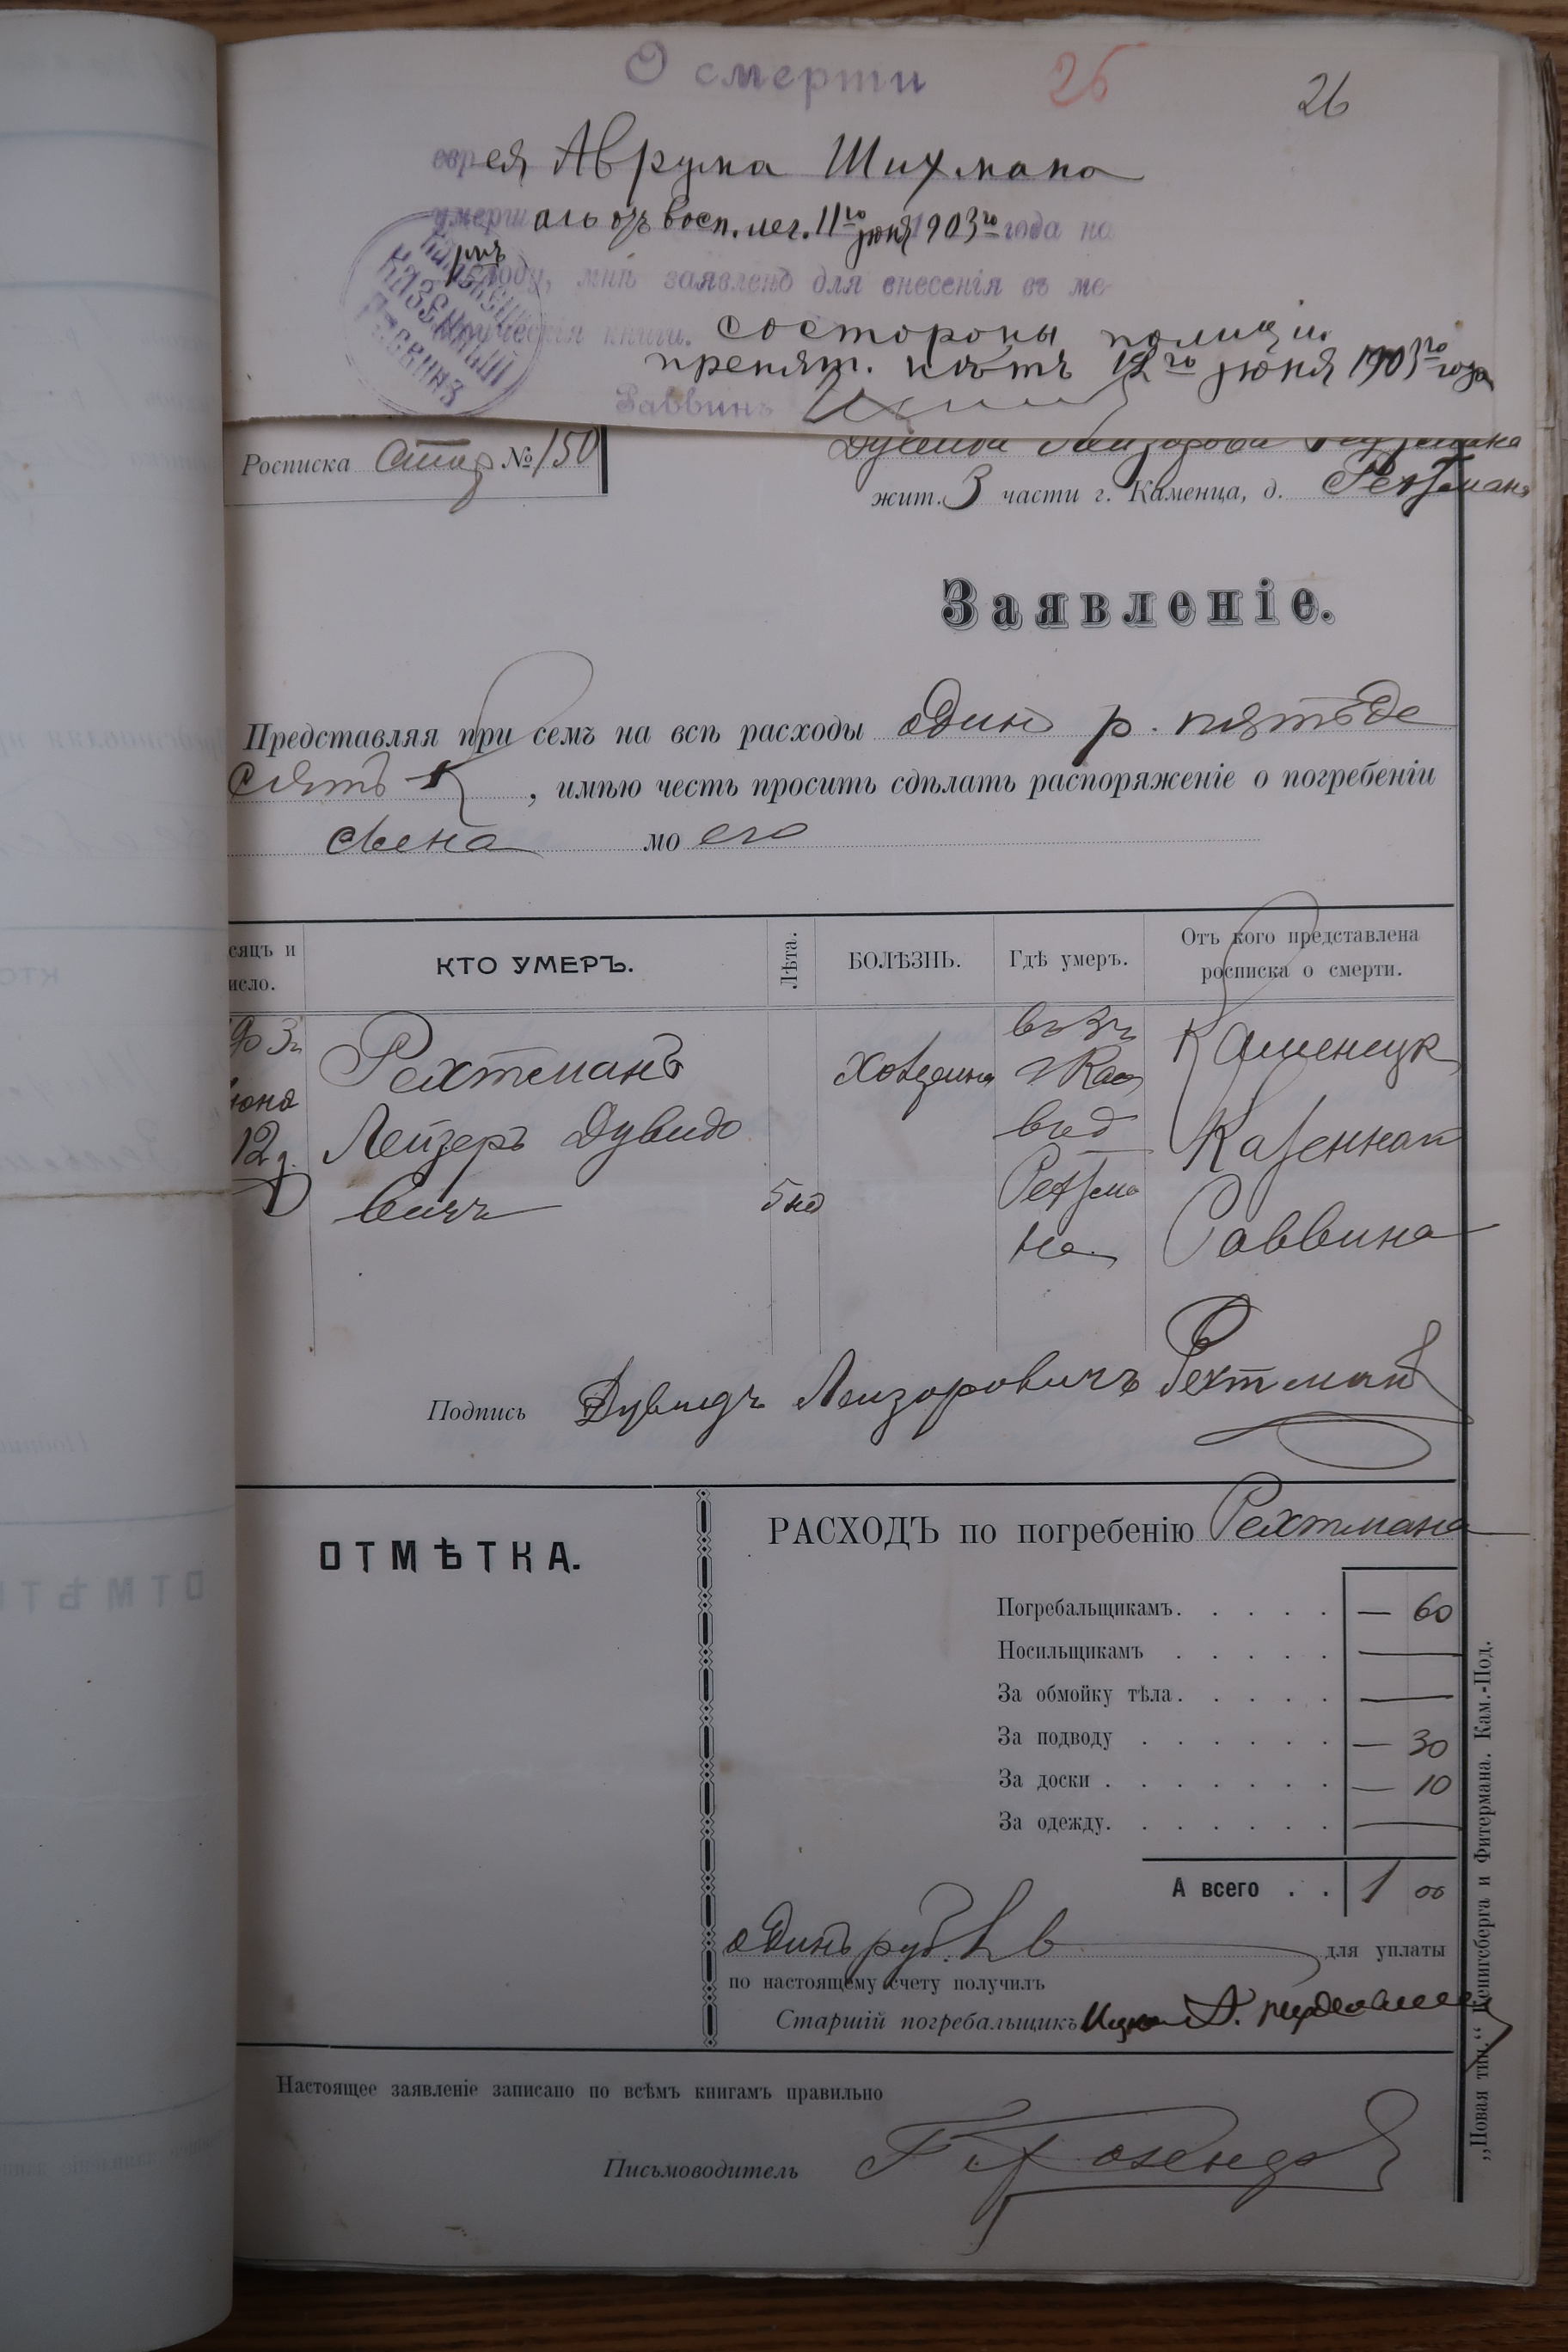 О смерти 25 26
еврея Аврума Шихмана
умерш отъ восп. лег. 11го июня 1903го года на
году, мнѣ заявлено для внесенія въ ме-
трическія книги. со стороны полиціи
препят. нѣтъ 12го июня 1903го года
Каменецкій
Казенный
Раввинъ
Раввинъ
Дувида Лейзорова Рехтмана
Росписка Стар № 150
жит. 3 части г. Каменца, д. Рехтмана
Заявленіе.
Представляя при семъ на всѣ расходы один р. пятьде
сятъ к, имѣю честь просить сдѣлать распоряженіе о погребеніи
сына моего
сяцъ и
исло.
КТО УМЕРЪ.
Лѣта.
БОЛѢЗНЬ.
Гдѣ умеръ.
Отъ кого представлена
росписка о смерти.
903г
июня
12д.
Рехтманъ
Лейзеръ Дувидо
вичъ
5 не
въ 3ч
г Кам
въ д
Рехтма
на
Каменецк
Казенна
Раввина
Подпись Дувидъ Лейзоровичъ Рехтманъ
ОТМѢТКА.
РАСХОДЪ по погребенію Рехтмана
Погребальщикамъ. . . . . — 60
Носильщикамъ . . . . . —
За обмойку тѣла. . . . . —
За подводу . . . . . . — 30
За доски . . . . . . . — 10
За одежду. . . . . . . —
А всего . . 1 00
одинъ руб. для уплаты
по настоящему счету получилъ
Старшій погребальщикъ
Настоящее заявленіе записано по всѣмъ книгамъ правильно
Письмоводитель
„Новая тип.“ Кенигсберга и Фитермана. Кам.-Под.